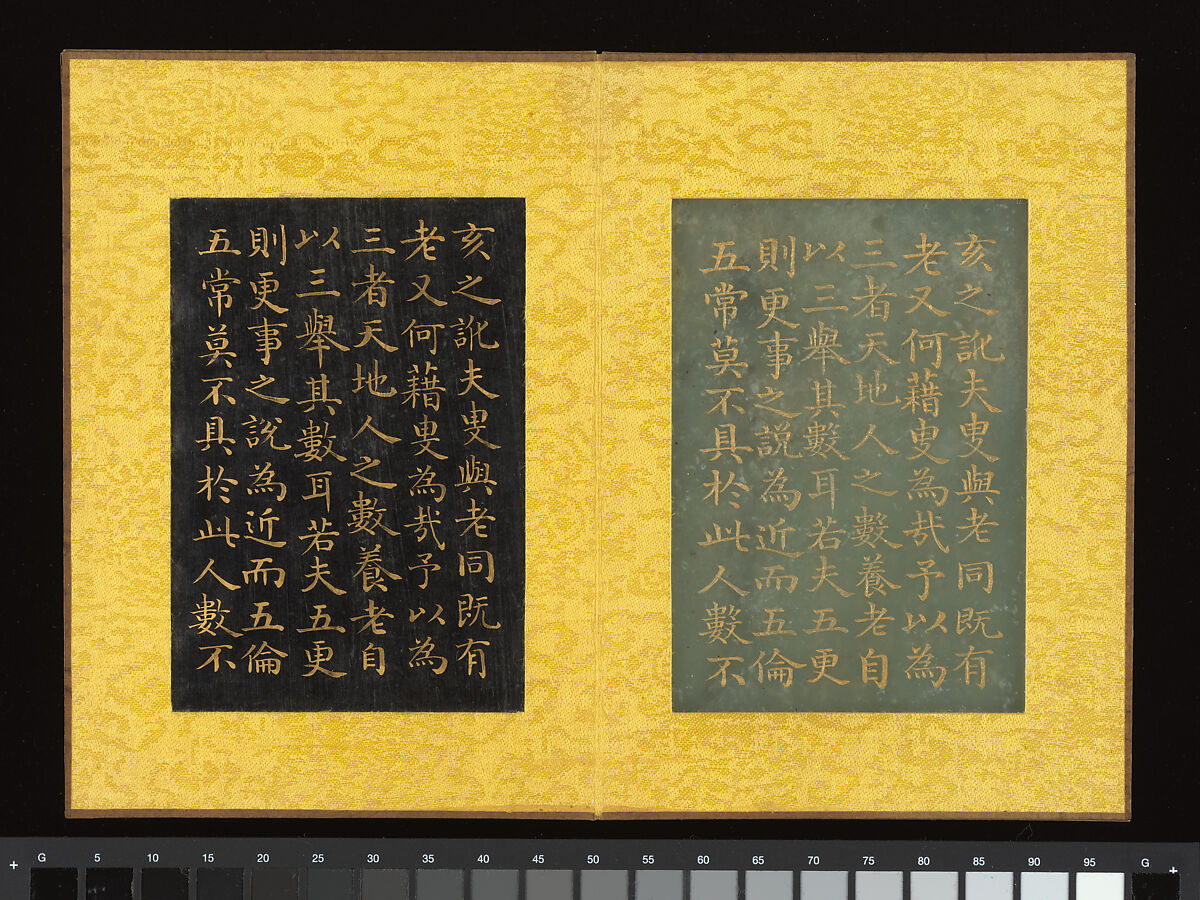 亥之訛夫叟與老同既有
老又何藉叟為哉予以為
三者天地人之數養老自
以三舉其數耳若夫五更
則更事之說為近而五倫
五常莫不具於此人數不
亥之訛夫叟與老同既有
老又何藉叟為哉予以為
三者天地人之數養老自
以三舉其數耳若夫五更
則更事之說為近而五倫
五常莫不具於此人數不
G 5 10 15 20 25 30 35 40 45 50 55 60 65 70 75 80 85 90 95 G